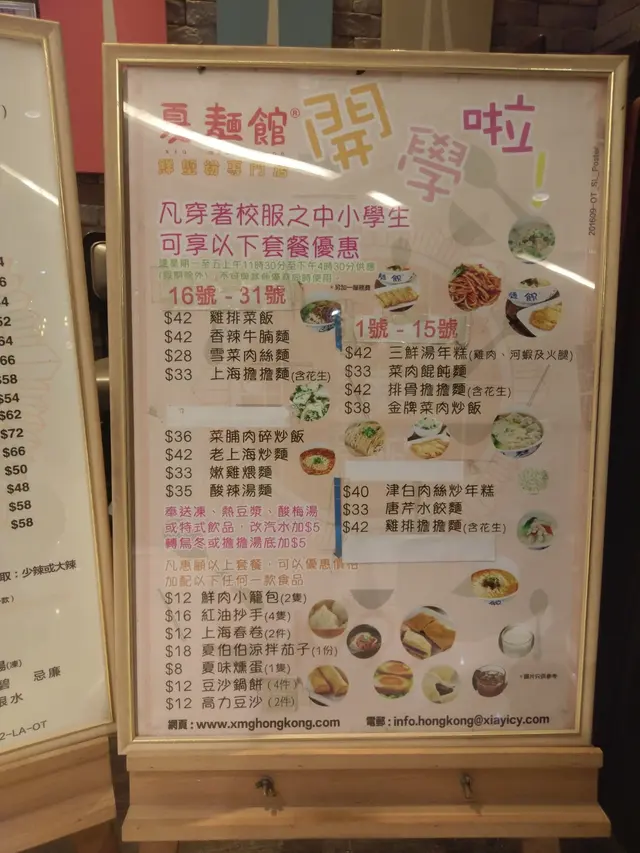 夏麵館®
開學啦!
凡穿著校服之中小學生
可享以下套餐優惠
逢星期一至五上午11時30分至下午4時30分供應
16號 - 31號
$42 雞排菜飯
$42 香辣牛腩麵
$28 雪菜肉絲麵
$33 上海擔擔麵(含花生)
$36 菜脯肉碎炒飯
$42 老上海炒麵
$33 嫩雞煨麵
$35 酸辣湯麵
1號 - 15號
$42 三鮮湯年糕(雞肉、河蝦及火腿)
$33 菜肉餛飩麵
$42 排骨擔擔麵(含花生)
$38 金牌菜肉炒飯
$40 津白肉絲炒年糕
$33 唐芹水餃麵
$42 雞排擔擔麵(含花生)
奉送凍、熱豆漿、酸梅湯
或特式飲品，改汽水加$5
轉烏冬或擔擔湯底加$5
凡惠顧以上套餐，可以優惠價格
加配以下任何一款食品
$12 鮮肉小籠包(2隻)
$16 紅油抄手(4隻)
$12 上海春卷(2件)
$18 夏伯伯涼拌茄子(1份)
$8 夏味燻蛋(1隻)
$12 豆沙鍋餅(4件)
$12 高力豆沙(2件)
網頁：www.xmghongkong.com 電郵：info.hongkong@xiayicy.com
$64
$66
$58
$54
$62
$72
$66
$50
$48
$58
$58
取：少辣或大辣
忌廉
2-LA-OT